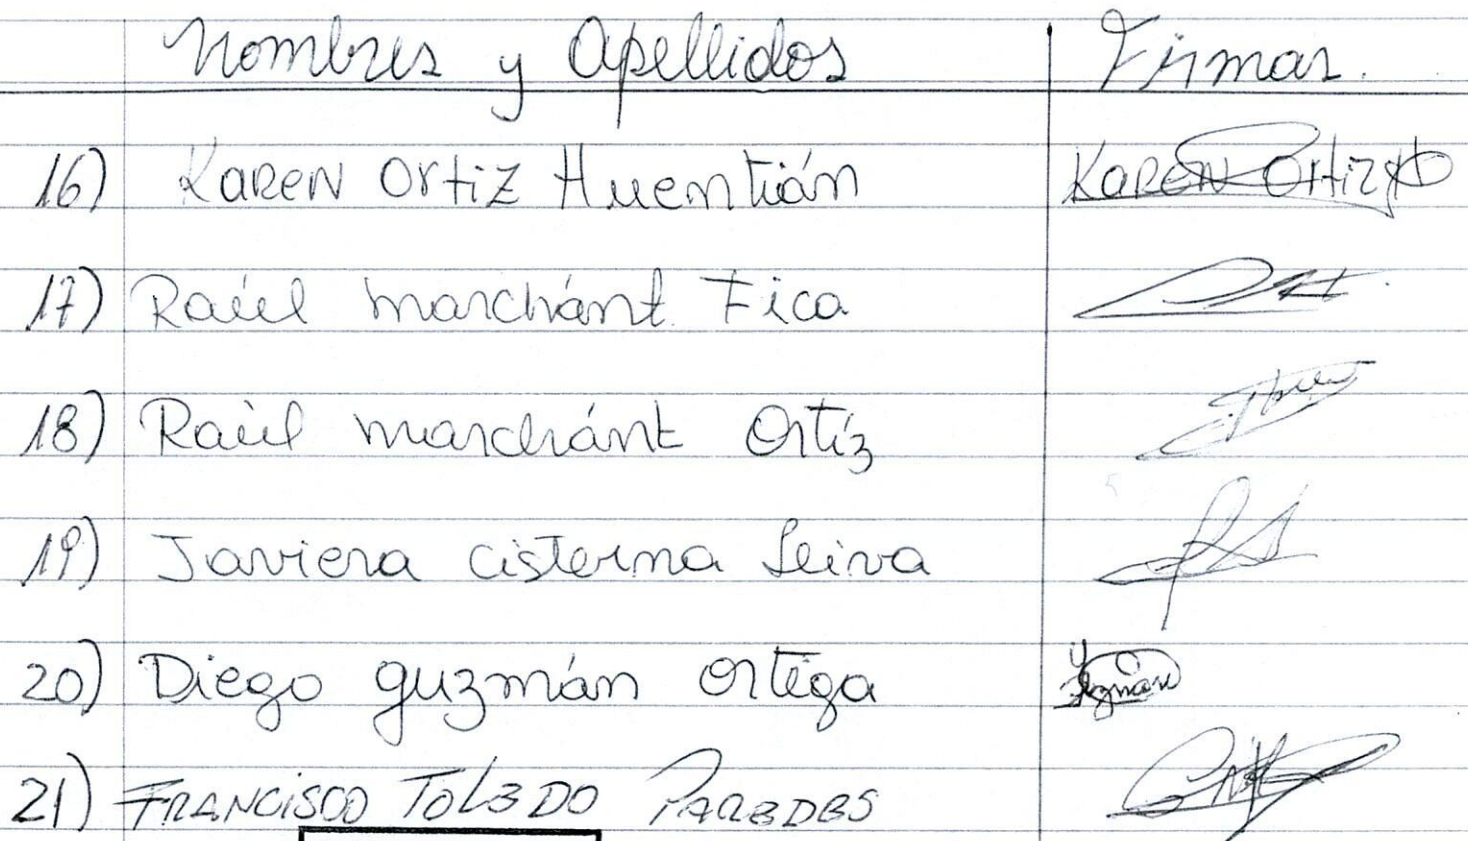 Nombres y Apellidos Firmas.
16) Karen Ortiz Huentián Karen Ortiz
17) Raúl Marchánt Fica
18) Raúl Marchánt Ortíz
19) Javiera Cisterna Leiva
20) Diego Guzmán Ortega
21) FRANCISCO TOLEDO PAREDES